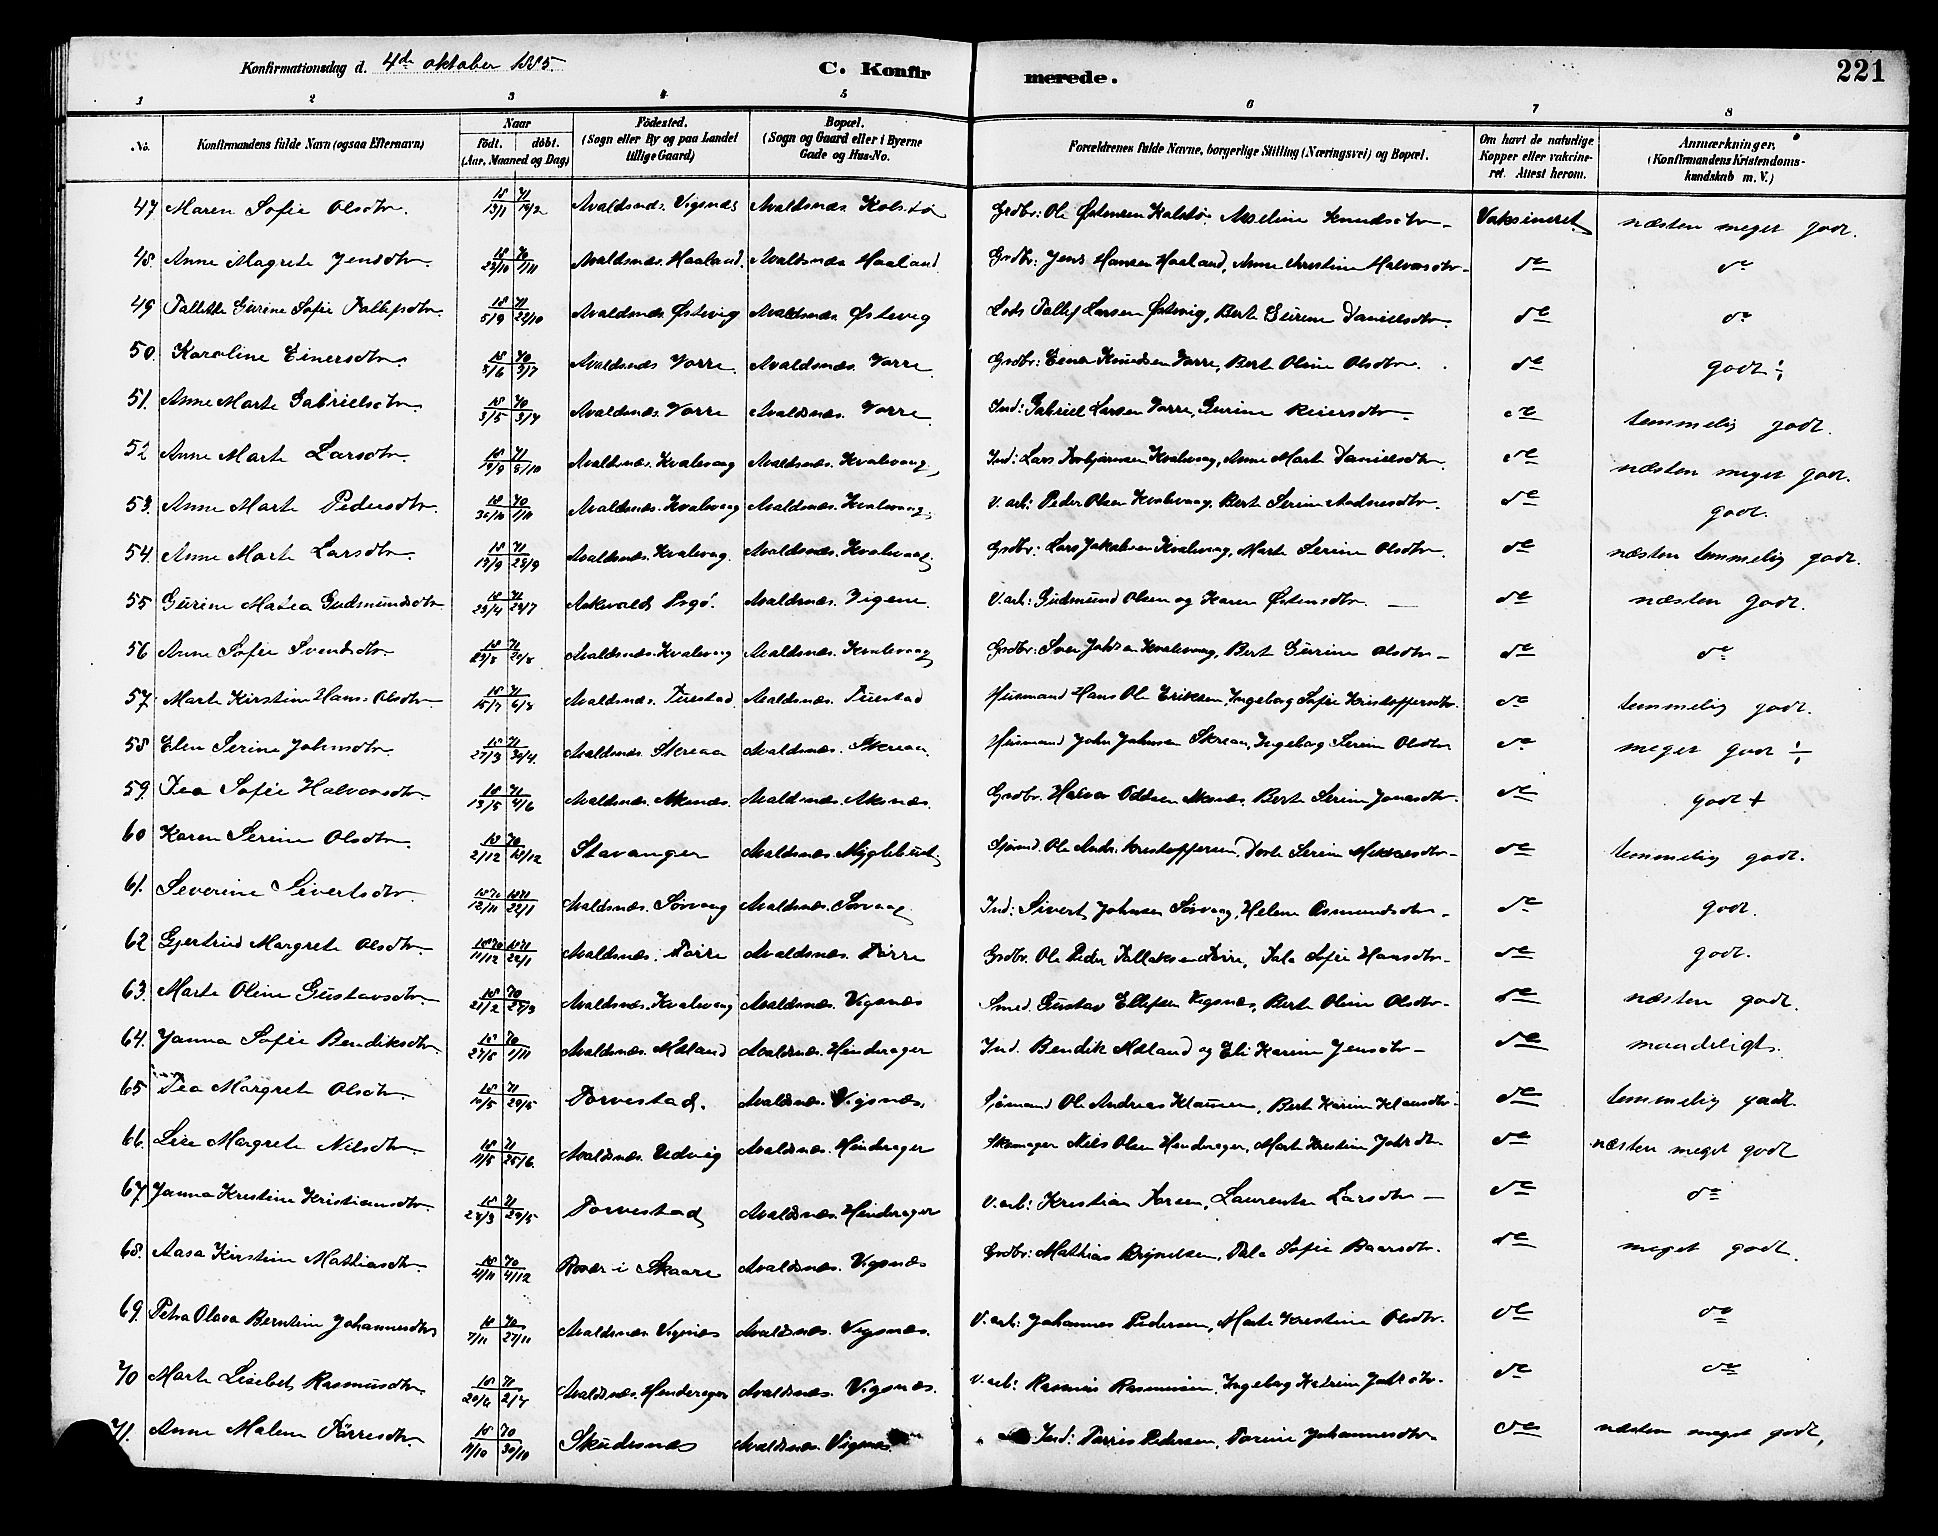 Konfirmationsdag d. 4de oktober 1885.
C. Konfirmerede.
221
1 2 3 4 5 6 7 8
No. Konfirmandens fulde Navn (ogsaa Efternavn) Naar födt. döbt. (Aar, Maaned og Dag) Födested. (Sogn eller By og paa Landet tillige Gaard) Bopæl. (Sogn og Gaard eller i Byerne Gade og Hus-No. Forældrenes fulde Navne, borgerlige Stilling (Næringsvei) og Bopæl. Om havt de naturlige Kopper eller vakcineret. Attest herom. Anmærkninger. (Konfirmandens Kristendomskundskab m. V.)
47 Maren Sofie Olsdtr. 18 71 13/1 19/2 Avaldsnæs. Vigsnæs Avaldsnæs. Kolstø Grdbr: Ole Østensen Kalstø. Aseline Knudsdtr Vaksineret næsten meget godt.
48. Anne Magrete Jensdtr. 18 70 23/10 1/11 Avaldsnæs. Haaland. Avaldsnæs Haaland. Grdbr: Jens Hansen Haaland, Anne Kristine Halvorsdtr de de
49 Tallette Gurine Sofie Tallefsdtr. 18 71 5/9 22/10 Avaldsnæs. Østevig Avaldsnæs. Østevig Lods Tallef Larsen Østevig, Berte Gurine Danielsdtr. de de
50. Karoline Einersdtr. 18 70 5/6 3/7 Avaldsnæs Vorre. Avaldsnæs. Vorre. Grdbr: Einer Knudsen Vorre, Berte Oline Olsdtr. de godt ÷
51. Anne Marte Gabrielsdtr. 18 70 3/5 3/7 Avaldsnæs. Vorre Avaldsnæs. Vorre. Ind: Gabriel Larsen Vorre, Gurine Reiersdtr. de temmelig godt.
52 Anne Marte Larsdtr. 18 71 19/9 8/10 Avaldsnæs. Kvalevaag Avaldsnæs. Kvalevaag, Ind: Lars Torbjørnsen Kvalevaag, Anne Marte Danielsdtr. de næsten meget godt.
53. Anne Marte Pedersdtr. 18 70 30/10 1/11 Avaldsnæs. Kvalevaag Avaldsnæs. Kvalevaag. V. arb: Peder Olsen Kvalevaag, Berte Serine Andreasdtr. de godt.
54. Anne Marte Larsdtr. 18 71 19/9 23/9 Avaldsnæs. Kvalevag. Avaldsnæs. Kvalevaag Grdbr: Lars Jakobsen Kvalevag, Marte Serine Olsdtr. de næsten temmelig godt.
55 Gurine Matea Gudmundsdtr 18 71 23/4 23/7 Askvold, Avaldsnæs. Vigene. V. arb: Gudmund Olsen og Karen Østensdtr. de næsten godt.
56 Anne Sofie Svendsdtr. 18 71 Avaldsnæs. Kvalevaag Avaldsnæs. Kvalevaag Grdbr: Sven Kvalevaag, Berte Gurine Olsdtr de de
57. Marte Kirstine Hans-Olsdtr. 18 71 15/7 6/8 Avaldsnæs. Tuestad Avaldsnæs. Tuestad Husmand Hans Ole Eriksen, Ingeborg Sofie Kristoffersdtr. de temmelig godt.
58 Elen Serine Johnsdtr. 18 71 27/3 30/4. Avaldsnæs. Skreaa Avaldsnæs. Skreaa. Husmand John Johnsen Skreaa, Ingeborg Serine Olsdtr de meget godt ÷
59. Tea Sofie Halvorsdtr. 18 71 13/5 4/6 Avaldsnæs. Aksnæs. Avaldsnæs. Aksnæs. Grdbr. Halvor Oddsen Aksnæs. Berte Serine Jonasdtr. de godt +
60 Karen Serine Olsdtr. 18 70 2/12 18/12 Stavanger Avaldsnæs. Myglebust, Sjømd. Ole Andr. Kristoffersen, Dorte Serine de temmelig godt.
61. Severine Sivertsdtr. 1870 1871 12/11 22/1 Avaldsnæs. Sørvaag Avaldsnæs. Sørvaag Ind: Sivert Johnsen Sørvaag, Helene Osmundsdtr. de godt.
62 Gjertrud Margrete Olsdtr. 1870 1871 11/12 22/1 Avaldsnæs. Tørre Avaldsnæs. Tørre Grdbr. Ole Peder Tallaksen Tørre, Tala Sofie Hansdtr. de godt.
63. Marte Oline Gustavsdtr. 18 70 21/2 27/3 Avaldsnæs. Kvalevaag Avaldsnæs. Vigsnæs Smed. Gustav Ellefsen Vigsnæs, Berte Oline Olsdtr. de næsten godt.
64. Janna Sofie Bendiksdtr. 18 70 27/8 1/11 Avaldsnæs. Mæland Avaldsnæs. Hinderager Ind. Bendik Mæland og Eli Karine Jensdtr. de maadeligt.
65 Tea Margrete Olsdtr. 18 71 10/5 29/5 Torvestad. Avaldsnæs. Vigsnæs. Sjømand Ole Andreas Klausen, Berte Karine Klausdtr. de temmelig godt.
66. Lise Margrete Nilsdtr. 18 71 11/5 25/6. Avaldsnæs. Udvig Avaldsnæs. Hinderager Skomager Nils Olsen Hinderager, Marte Kristine de næsten meget godt
67 Janna Kristine Kristiansdtr. 18 71 24/3 29/5 Torvestad Avaldsnæs. Hinderager V. arb: Kristian Larsen, Laurentse Larsdtr. de de
68. Aasa Kirstine Mathiasdtr. 18 70 4/11 4/12 i Skaare Avaldsnæs. Vigsnæs Grdbr: Mathias Brynelsen, Tala Sofie Baarsdtr. de meget godt.
69. Petra Olava Berntine Johannesdtr 18 70 7/11 27/11 Avaldsnæs. Vigsnæs Avaldsnæs. Vigsnæs. V. arb: Johannes Pedersen, Marte Kristine Olsdtr. de de
70 Marte Lisebet Rasmusdtr. 18 71 20/4 2/7 Avaldsnæs. Hinderager Avaldsnæs. Vigsnæs. V. arb: Rasmus Rasmussen, Ingeborg Katrine de de
71. Anne Malene Tørresdtr. 18 70 11/10 30/10 Skudesnæs Avaldsnæs. Vigsnæs Ind: Tørres Pedersen, Torine Johannesdtr. de næsten meget godt,